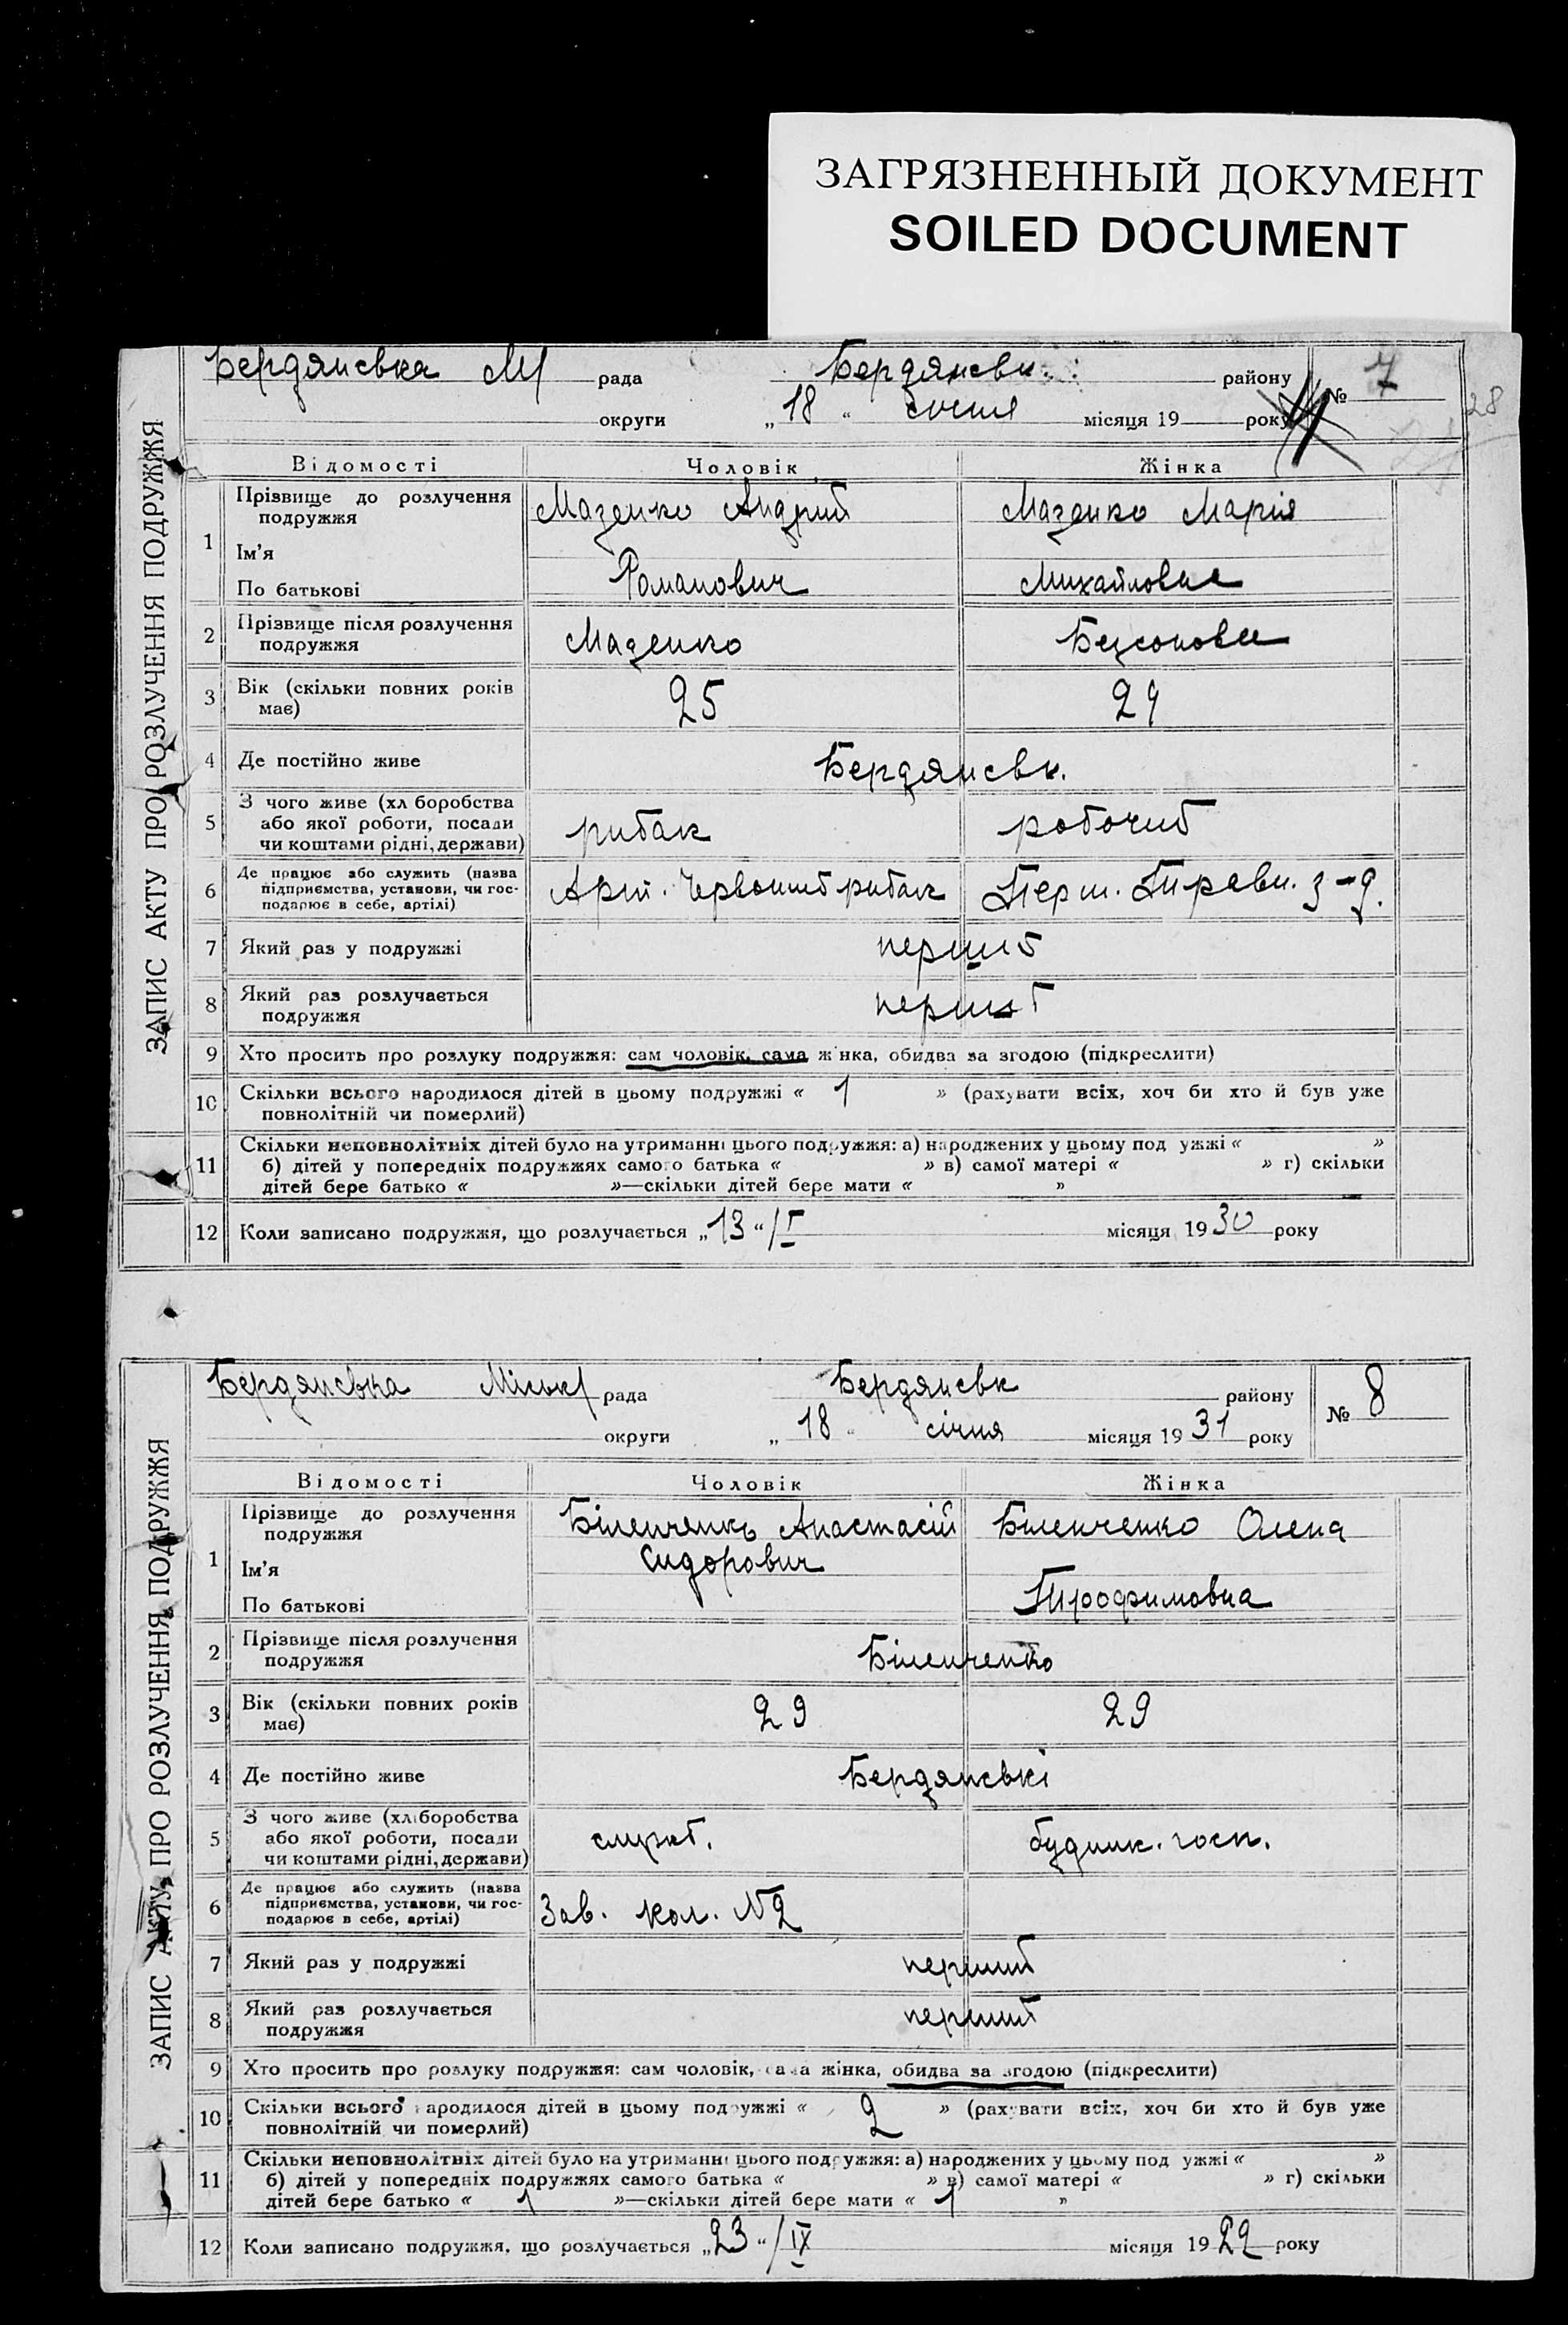 ЗАГРЯЗНЕННЫЙ ДОКУМЕНТ
SOILED DOCUMENT
ЗАПИС АКТУ ПРО РОЗЛУЧЕННЯ ПОДРУЖЖЯ
Бердянська М рада Бердянськ. району № 7
28
округи „18“ січня місяця 19 року
Відомості Чоловік Жінка
1 Прізвище до розлучення подружжя Мазенко Андрий Мазенко Мария
Ім'я
По батькові Романович Михайловна
2 Прізвище після розлучення подружжя Мазенко Безсонова
3 Вік (скільки повних років має) 25 24
4 Де постійно живе Бердянськ.
5 З чого живе (хл боробства або якої роботи, посади чи коштами рідні, держави) рибак робочий
6 Де працює або служить (назва підприємства, установи, чи господарює в себе, артілі) Арт. Червоний рибак Перш. Травн. з-д.
7 Який раз у подружжі перший
8 Який раз розлучається подружжя перший
9 Хто просить про розлуку подружжя: сам чоловік, сама жінка, обидва за згодою (підкреслити)
10 Скільки всього народилося дітей в цьому подружжі « 1 » (рахувати всіх, хоч би хто й був уже
повнолітній чи померлий)
11 Скільки неповнолітніх дітей було на утриманні цього подружжя: а) народжених у цьому под ужжі « »
б) дітей у попередніх подружжях самого батька « » в) самої матері « » г) скільки
дітей бере батько « »—скільки дітей бере мати « »
12 Коли записано подружжя, що розлучається „13“/I місяця 1930 року
ЗАПИС АКТУ ПРО РОЗЛУЧЕННЯ ПОДРУЖЖЯ
Бердянська Міськ рада Бердянськ району № 8
округи „18“ січня місяця 1931 року
Відомості Чоловік Жінка
1 Прізвище до розлучення подружжя Біленченко Анастасій Біленченко Олена
Ім'я Сидорович
По батькові Трофимовна
2 Прізвище після розлучення подружжя Біленченко
3 Вік (скільки повних років має) 29 29
4 Де постійно живе Бердянські
5 З чого живе (хліборобства або якої роботи, посади чи коштами рідні, держави) служб. будинк. госп.
6 Де працює або служить (назва підприємства, установи, чи господарює в себе, артілі) Зав. кол. №2
7 Який раз у подружжі перший
8 Який раз розлучається подружжя перший
9 Хто просить про розлуку подружжя: сам чоловік, сама жінка, обидва за згодою (підкреслити)
10 Скільки всього народилося дітей в цьому подружжі « 2 » (рахувати всіх, хоч би хто й був уже
повнолітній чи померлий)
11 Скільки неповнолітніх дітей було на утриманні цього подружжя: а) народжених у цьому под ужжі « »
б) дітей у попередніх подружжях самого батька « » в) самої матері « » г) скільки
дітей бере батько « 1 »—скільки дітей бере мати « 1 »
12 Коли записано подружжя, що розлучається „23“/IX місяця 1922 року